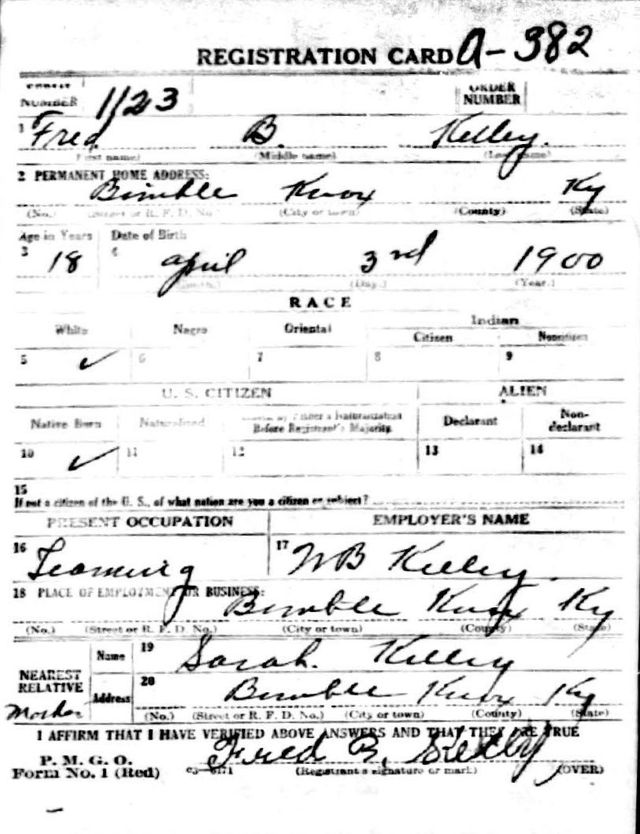 REGISTRATION CARD A-382
NUMBER 1123 ORDER NUMBER
1 Fred B. Kelley.
(First name) (Middle name) (Last name)
2 PERMANENT HOME ADDRESS:
Bimble Knox Ky
(No.) (Street or R. F. D. No.) (City or town) (County) (State)
Age in Years Date of Birth
3 18 4 April 3rd 1900
(Month.) (Day.) (Year.)
RACE
White Negro Oriental Indian
Citizen Noncitizen
5 ✓ 6 7 8 9
U. S. CITIZEN ALIEN
Native Born Naturalized Citizen by Father's Naturalization Before Registrant's Majority Declarant Non-declarant
10 ✓ 11 12 13 14
15
If not a citizen of the U. S., of what nation are you a citizen or subject?
PRESENT OCCUPATION EMPLOYER'S NAME
16 Teaming 17 WB Kelley.
18 PLACE OF EMPLOYMENT OR BUSINESS:
Bimble Knox Ky
(No.) (Street or R. F. D. No.) (City or town) (County) (State)
NEAREST RELATIVE Name 19 Sarah. Kelley
Mother Address 20 Bimble Knox Ky
(No.) (Street or R. F. D. No.) (City or town) (County) (State)
I AFFIRM THAT I HAVE VERIFIED ABOVE ANSWERS AND THAT THEY ARE TRUE
P. M. G. O.
Form No. 1 (Red) c3—6171 Fred B. Kelley
(Registrant's signature or mark) (OVER)